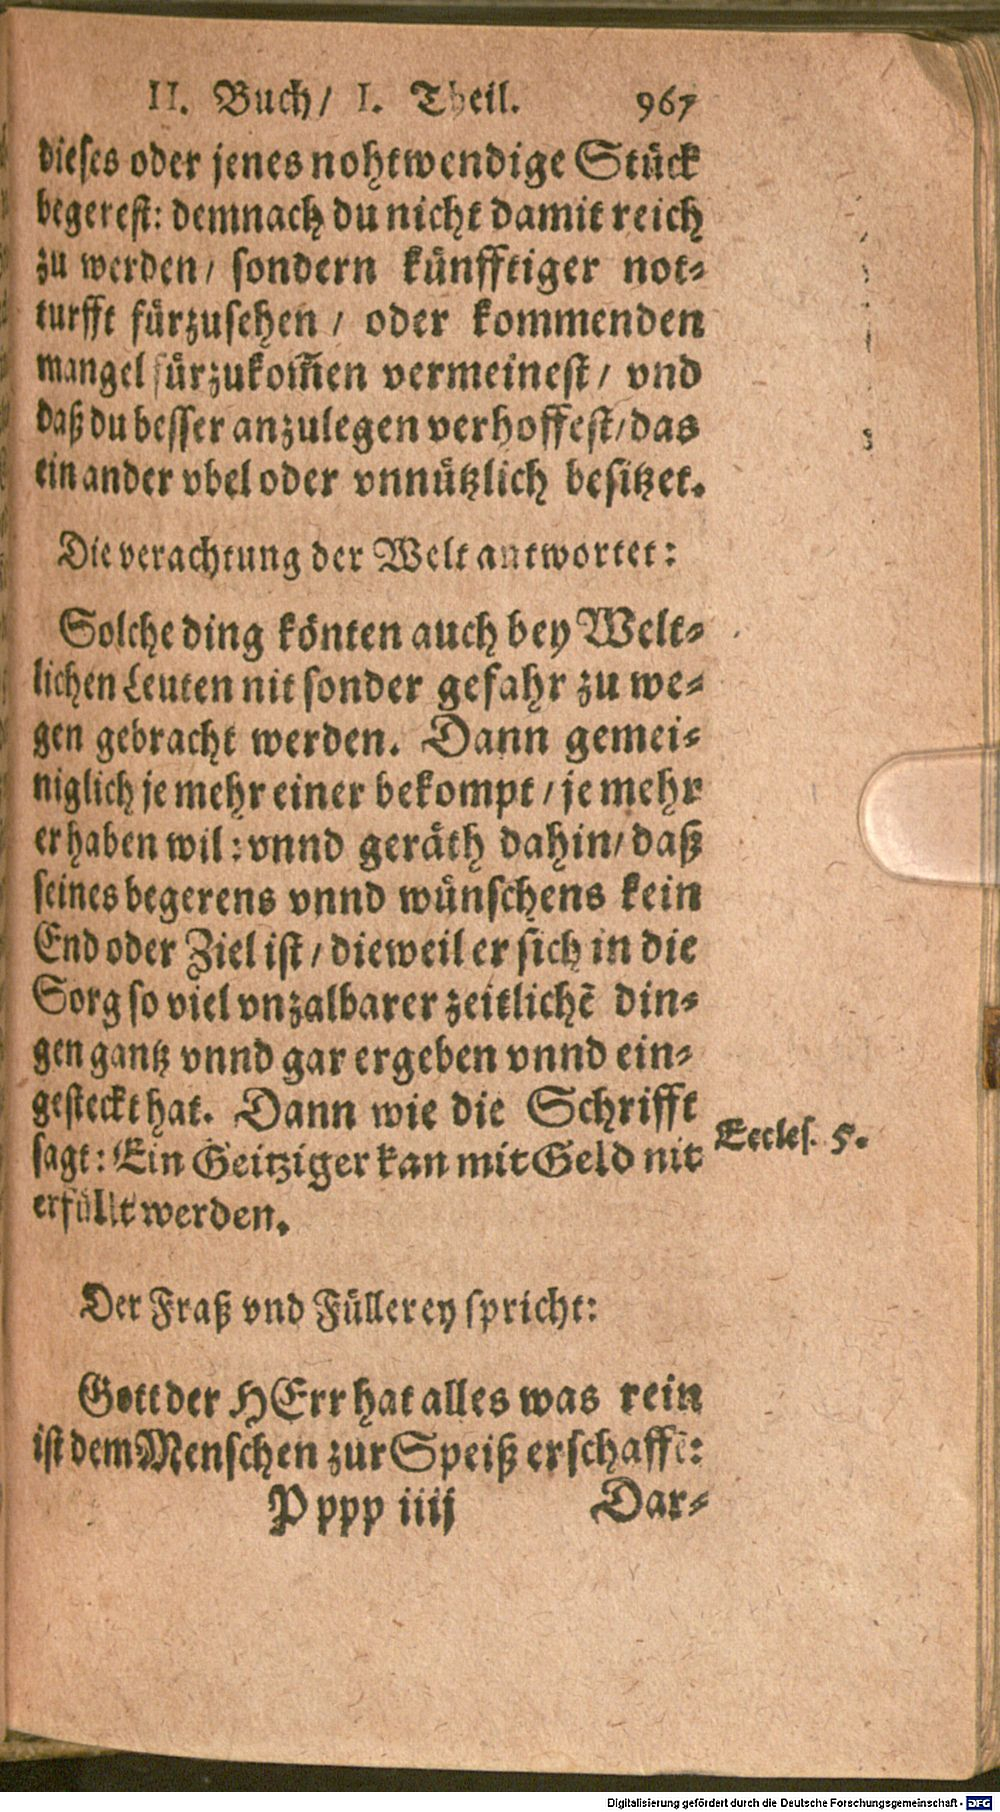 II. Buch/ I. Theil. 967
dieses oder jenes nohtwendige Stück
begerest: demnach du nicht damit reich
zu werden/ sondern künfftiger not-
turfft fürzusehen / oder kommenden
mangel fürzukom̃en vermeinest/ vnd
daß du besser anzulegen verhoffest/das
ein ander vbel oder vnnützlich besitzet.
Die verachtung der Welt antwortet:
Solche ding könten auch bey Welt-
lichen Leuten nit sonder gefahr zu we-
gen gebracht werden. Dann gemei-
niglich je mehr einer bekompt/ je mehr
er haben wil: vnnd geräth dahin/ daß
seines begerens vnnd wünschens kein
End oder Ziel ist/ dieweil er sich in die
Sorg so viel vnzalbarer zeitlichẽ din-
gen gantz vnnd gar ergeben vnnd ein-
gesteckt hat. Dann wie die Schrifft
sagt: Ein Geitziger kan mit Geld nit
Eccles. 5.
erfüllt werden.
Der Fraß vnd Füllerey spricht:
Gott der HErr hat alles was rein
ist dem Menschen zur Speiß erschaffẽ:
P ppp iiij Dar-
Digitalisierung gefördert durch die Deutsche Forschungsgemeinschaft - DFG